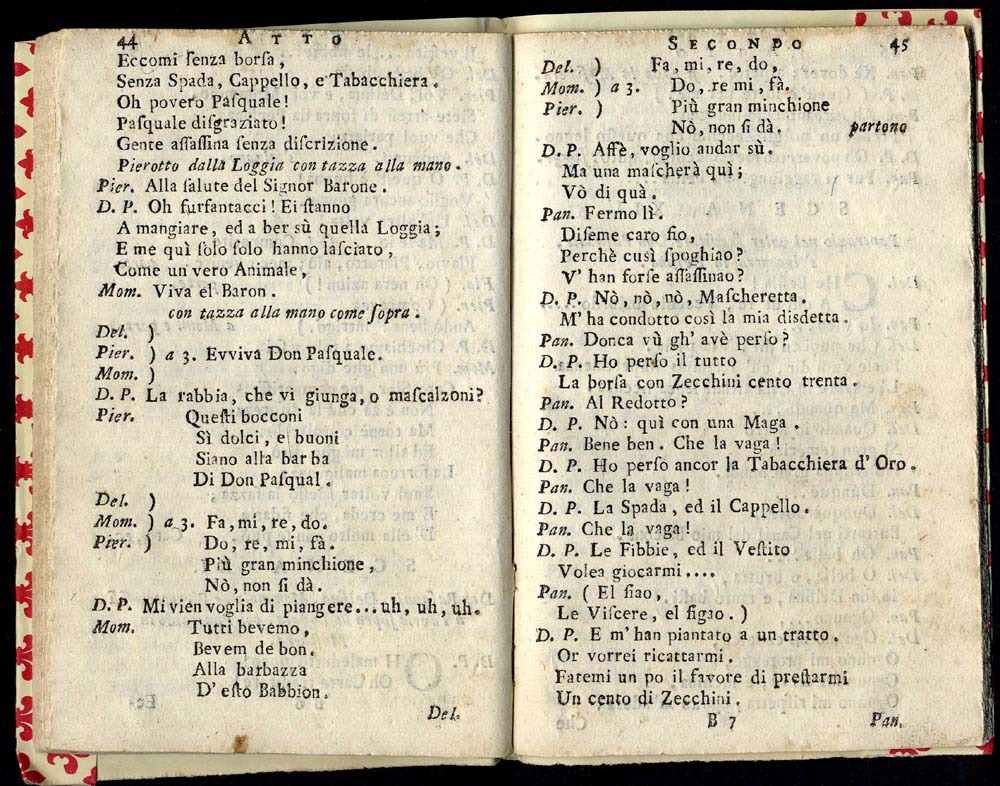 44 ATTO
Eccomi ſenza borſa,
Senza Spada, Cappello, e Tabacchiera.
Oh povero Paſquale!
Paſquale diſgraziato!
Gente aſſaſſina ſenza diſcrizione.
Pierotto dalla Loggia con tazza alla mano.
Pier. Alla ſalute del Signor Barone.
D. P. Oh furfantacci! Ei ſtanno
A mangiare, ed a ber sù quella Loggia;
E me quì ſolo ſolo hanno laſciato,
Come un vero Animale,
Mom. Viva el Baron.
con tazza alla mano come ſopra.
Del. )
Pier. ) a 3. Evviva Don Paſquale.
Mom. )
D. P. La rabbia, che vi giunga, o maſcalzoni?
Pier. Queſti bocconi
Sì dolci, e buoni
Siano alla barba
Di Don Paſqual.
Del. )
Mom. ) a 3. Fa, mi, re, do.
Pier. ) Do, re, mi, fà.
Più gran minchione,
Nò, non ſi dà.
D. P. Mi vien voglia di piangere...uh, uh, uh.
Mom. Tutti bevemo,
Bevem de bon.
Alla barbazza
D' eſto Babbion.
Del.
SECONDO 45
Del. ) Fa, mi, re, do,
Mom. ) a 3. Do, re mi, fà.
Pier. ) Più gran minchione
Nò, non ſi dà. partono
D. P. Affè, voglio andar sù.
Ma una maſcherà quì;
Vò di quà.
Pan. Fermo lì.
Diſeme caro ſio,
Perchè cusì ſpoghiao?
V' han forſe aſſaſſinao?
D. P. Nò, nò, nò, Maſcheretta.
M' ha condotto così la mia disdetta.
Pan. Donca vù gh' avè perſo?
D. P. Ho perſo il tutto
La borſa con Zecchini cento trenta.
Pan. Al Redotto?
D. P. Nò: quì con una Maga.
Pan. Bene ben. Che la vaga!
D. P. Ho perſo ancor la Tabacchiera d' Oro.
Pan. Che la vaga!
D. P. La Spada, ed il Cappello.
Pan. Che la vaga!
D. P. Le Fibbie, ed il Veſtito
Volea giocarmi....
Pan. ( El fiao,
Le Viſcere, el figao. )
D. P. E m' han piantato a un tratto.
Or vorrei ricattarmi.
Fatemi un po il favore di preſtarmi
Un cento di Zecchini.
B 7 Pan.